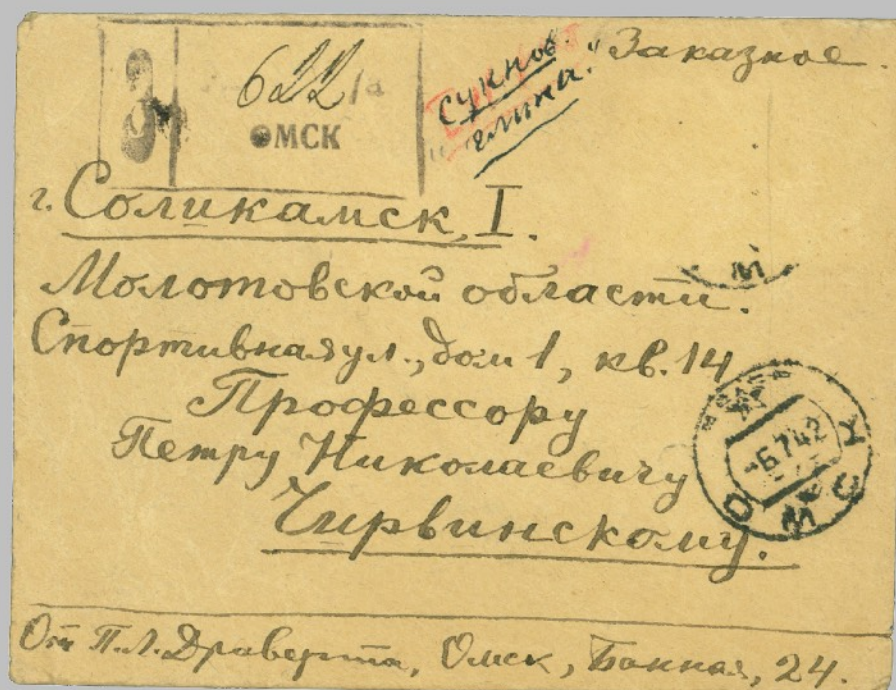 Заказное.
З
622
ОМСК
Сукнов.
глина.
г. Соликамск, I.
Молотовской области.
Спортивная ул., дом 1, кв. 14
Профессору
Петру Николаевичу
Чирвинскому.
ОМСК
-6.7.42
От П.Л. Драверта, Омск, Банная, 24.